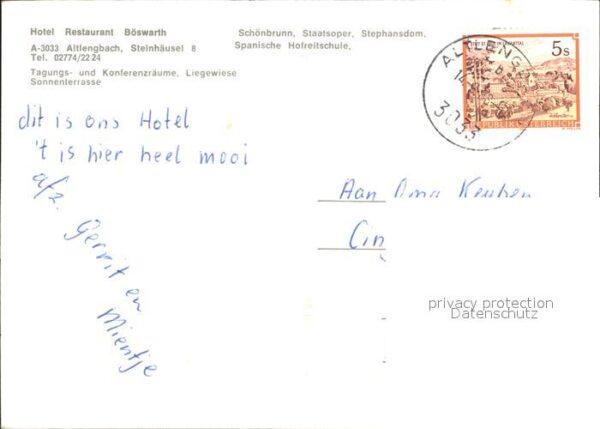 Hotel Restaurant Böswarth
A-3033 Altlengbach, Steinhäusel 8
Tel. 02774/2224
Tagungs- und Konferenzräume, Liegewiese
Sonnenterrasse
Schönbrunn, Staatsoper, Stephansdom,
Spanische Hofreitschule,
5s
REPUBLIK ÖSTERREICH
ALTLENG
3033
dit is ons Hotel
't is hier heel mooi
afz.
Gerrit en
Mientje
Aan Oma Keuken
Cin
privacy protection
Datenschutz